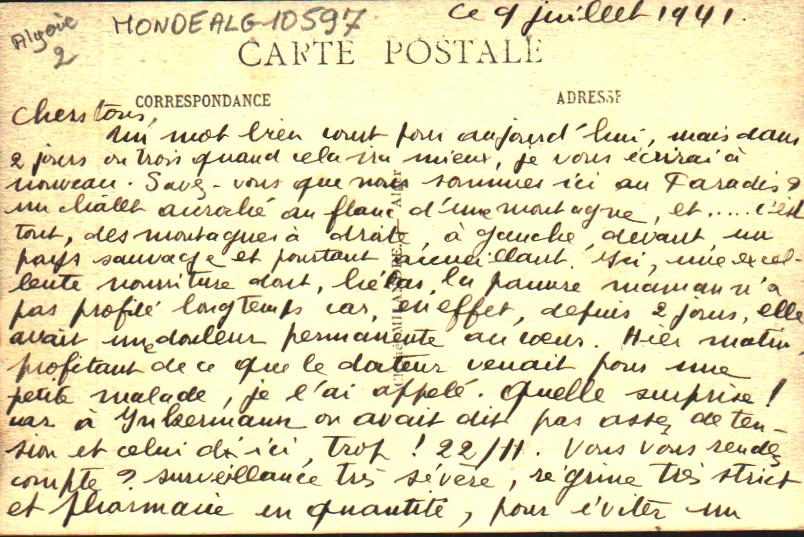 Algérie
2
MONDEALG-10597
Ce 9 juillet 1941.
CARTE POSTALE
CORRESPONDANCE
ADRESSE
Chers tous,
Un mot bien court pour aujourd'hui, mais dans
2 jours ou trois quand cela ira mieux, je vous écrirai à
nouveau. Savez-vous que nous sommes ici au Paradis?
un châlet accroché au flanc d'une montagne, et ..... c'est
tout, des montagnes à droite, à gauche, devant, un
pays sauvage et pourtant accueillant. Ici, une excel-
lente nourriture dont, hélas, la pauvre maman n'a
pas profité longtemps car, en effet, depuis 2 jours, elle
avait une douleur permanente au coeur. Hier matin,
profitant de ce que le docteur venait pour une
petite malade, je l'ai appelé. Quelle surprise!
car à Inkermann on avait dit pas assez de ten-
sion et celui d'ici, trop! 22/11. Vous vous rendez
compte? surveillance très sévère, régime très strict
et pharmacie en quantité, pour éviter un